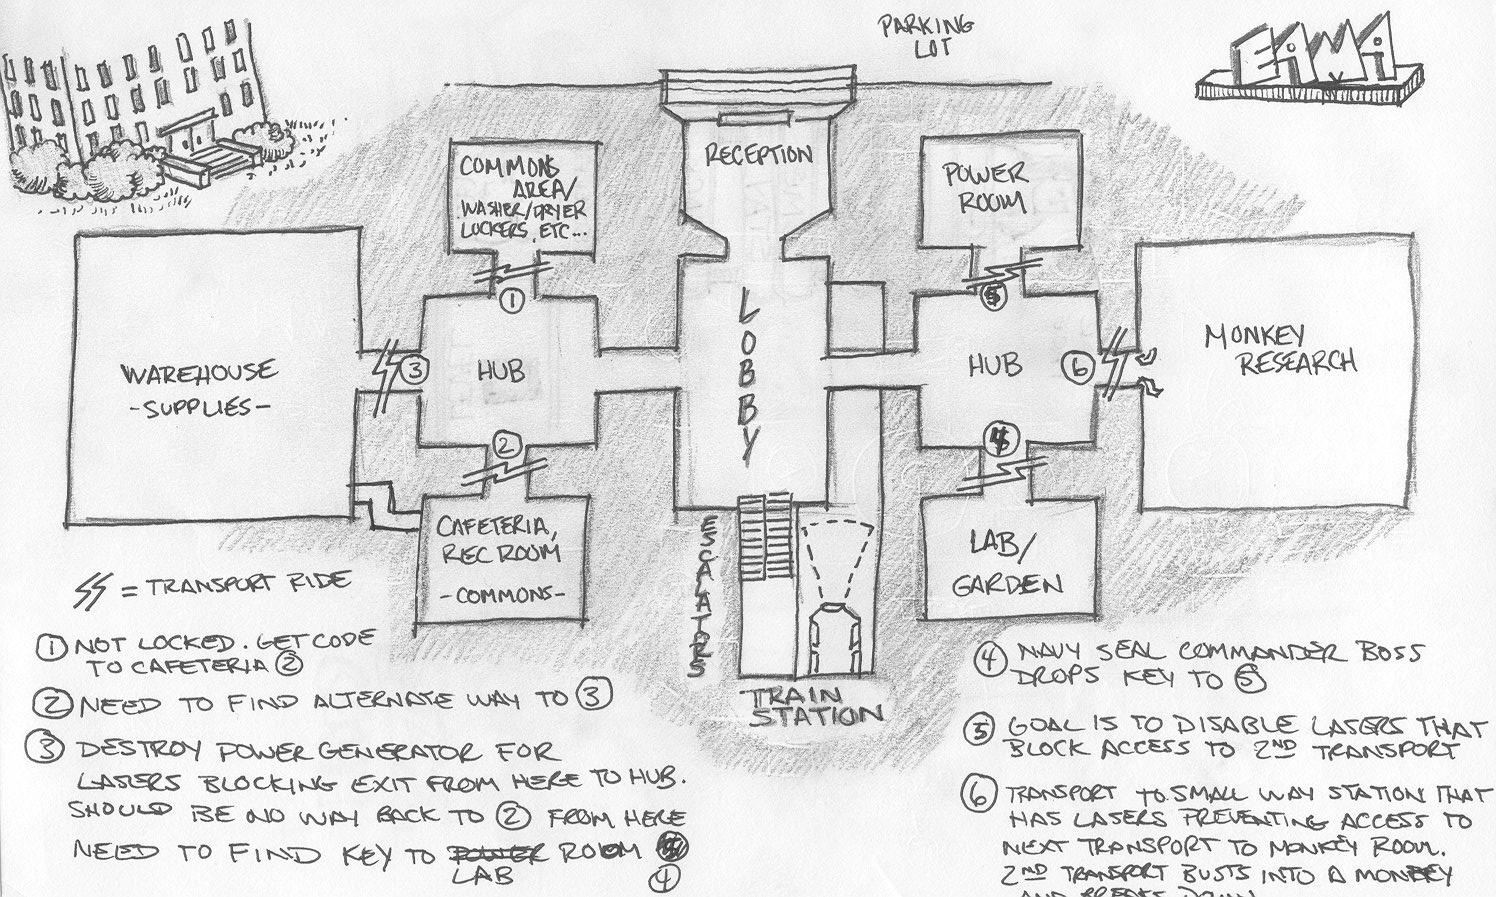 PARKING
LOT
EIMA
COMMONS
AREA/
WASHER/DRYER
LOCKERS, ETC...
RECEPTION
POWER
ROOM
1
5
WAREHOUSE
-SUPPLIES-
3
HUB
LOBBY
HUB
6
MONKEY
RESEARCH
2
4
CAFETERIA,
REC ROOM
-COMMONS-
ESCALATRS
LAB/
GARDEN
TRAIN
STATION
= TRANSPORT RIDE
1 NOT LOCKED. GET CODE
TO CAFETERIA 2
2 NEED TO FIND ALTERNATE WAY TO 3
3 DESTROY POWER GENERATOR FOR
LASERS BLOCKING EXIT FROM HERE TO HUB.
SHOULD BE NO WAY BACK TO 2 FROM HERE
NEED TO FIND KEY TO POWER ROOM
LAB 4
4 NAVY SEAL COMMANDER BOSS
DROPS KEY TO 5
5 GOAL IS TO DISABLE LASERS THAT
BLOCK ACCESS TO 2ND TRANSPORT
6 TRANSPORT TO SMALL WAY STATION THAT
HAS LASERS PREVENTING ACCESS TO
NEXT TRANSPORT TO MONKEY ROOM.
2ND TRANSPORT BUSTS INTO A MONKEY
AND BREAKS DOWN